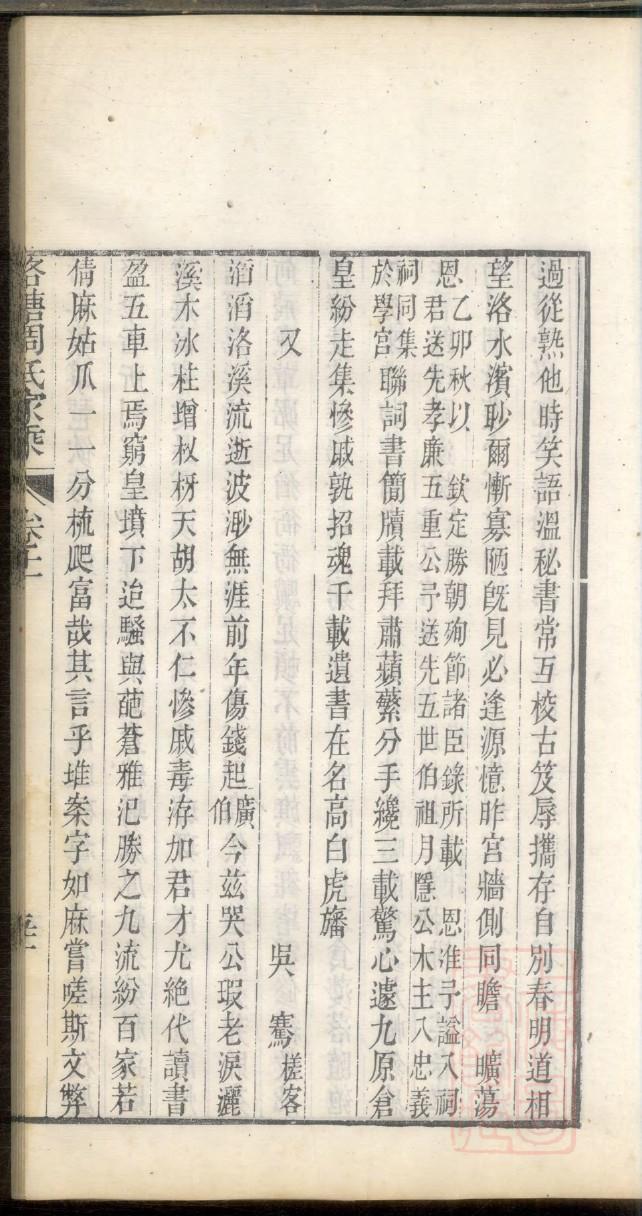 過從熟他時笑語溫秘書常互校古笈辱攜存自別春明道相
望洛水濱眇爾慚寡陋既見必逢源憶昨宮牆側同瞻 曠蕩
恩乙卯秋以 欽定勝朝殉節諸臣錄所載 恩准予謚入祠
君送先孝廉五重公予送先五世伯祖月隱公木主入忠義
祠同集
於學宮聯詞書簡牘載拜肅蘋蘩分手纔三載驚心遽九原倉
皇紛走集慘戚孰招魂千載遺書在名高白虎旛
又 吳騫槎客
滔滔洛溪流逝波渺無涯前年傷錢起廣伯今茲哭公瑕老淚灑
溪木冰柱增杈枒天胡太不仁慘戚毒洊加君才尤絕代讀書
盈五車上焉窮皇墳下迨騷與葩蒼雅氾勝之九流紛百家若
倩麻姑爪一一分梳爬富哉其言乎堆案字如麻嘗嗟斯文弊
洛塘周氏家乘 卷十二